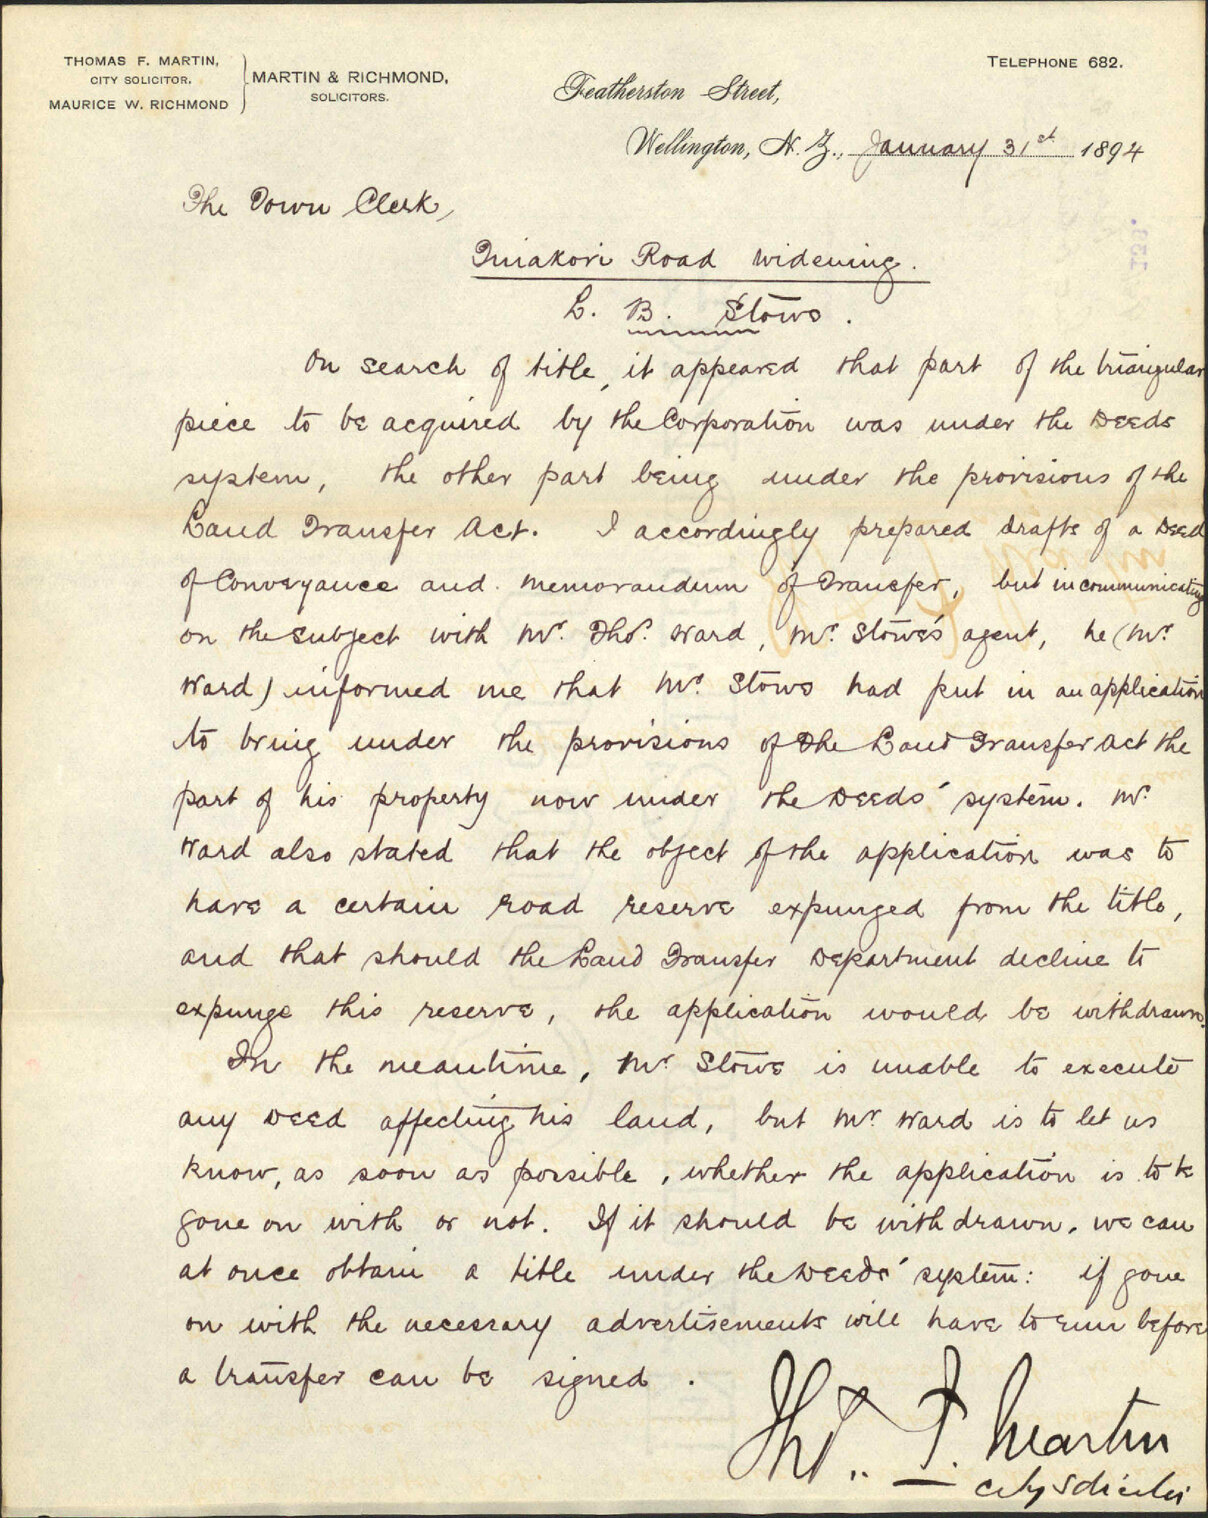 THOMAS F. MARTIN,
CITY SOLICITOR.
MAURICE W. RICHMOND
MARTIN & RICHMOND,
SOLICITORS.
TELEPHONE 682.
Featherston Street,
Wellington, N. Z., January 31st 1894
The Town Clerk,
Tinakori Road Widening.
L. B. Stowe.
On search of title, it appeared that part of the triangular
piece to be acquired by the Corporation was under the Deeds
system, the other part being under the provisions of the
Land Transfer Act. I accordingly prepared drafts of a Deed
of Conveyance and memorandum of Transfer, but in communicating
on the subject with Mr. Thos. Ward, Mr. Stowe's agent, he (Mr.
Ward) informed me that Mr. Stowe had put in an application
to bring under the provisions of The Land Transfer Act the
part of his property now under the Deeds' system. Mr.
Ward also stated that the object of the application was to
have a certain road reserve expunged from the title,
and that should the Land Transfer Department decline to
expunge this reserve, the application would be withdrawn.
In the meantime, Mr Stowe is unable to execute
any Deed affecting his land, but Mr Ward is to let us
know, as soon as possible, whether the application is to be
gone on with or not. If it should be withdrawn, we can
at once obtain a title under the Deeds' system: if gone
on with the necessary advertisements will have to run before
a transfer can be signed.
Thos. F. Martin
City Solicitor